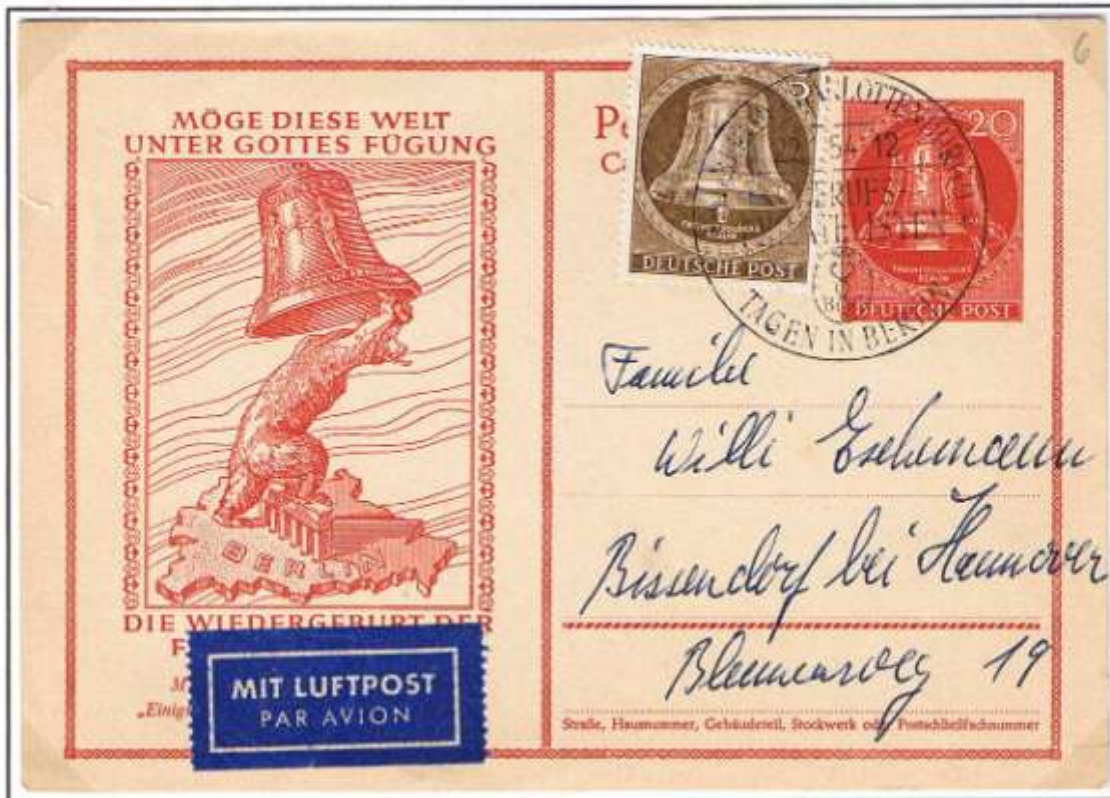 6
MÖGE DIESE WELT
UNTER GOTTES FÜGUNG
BERLIN
DIE WIEDERGEBURT DER
F
M
„Einig
MIT LUFTPOST
PAR AVION
DEUTSCHE POST
20
DEUTSCHE POST
54-12
TAGEN IN BERLIN
Familie
Willi Eschemann
Bissendorf bei Hannover
Blumenweg 19
Straße, Hausnummer, Gebäudeteil, Stockwerk oder Postschließfachnummer